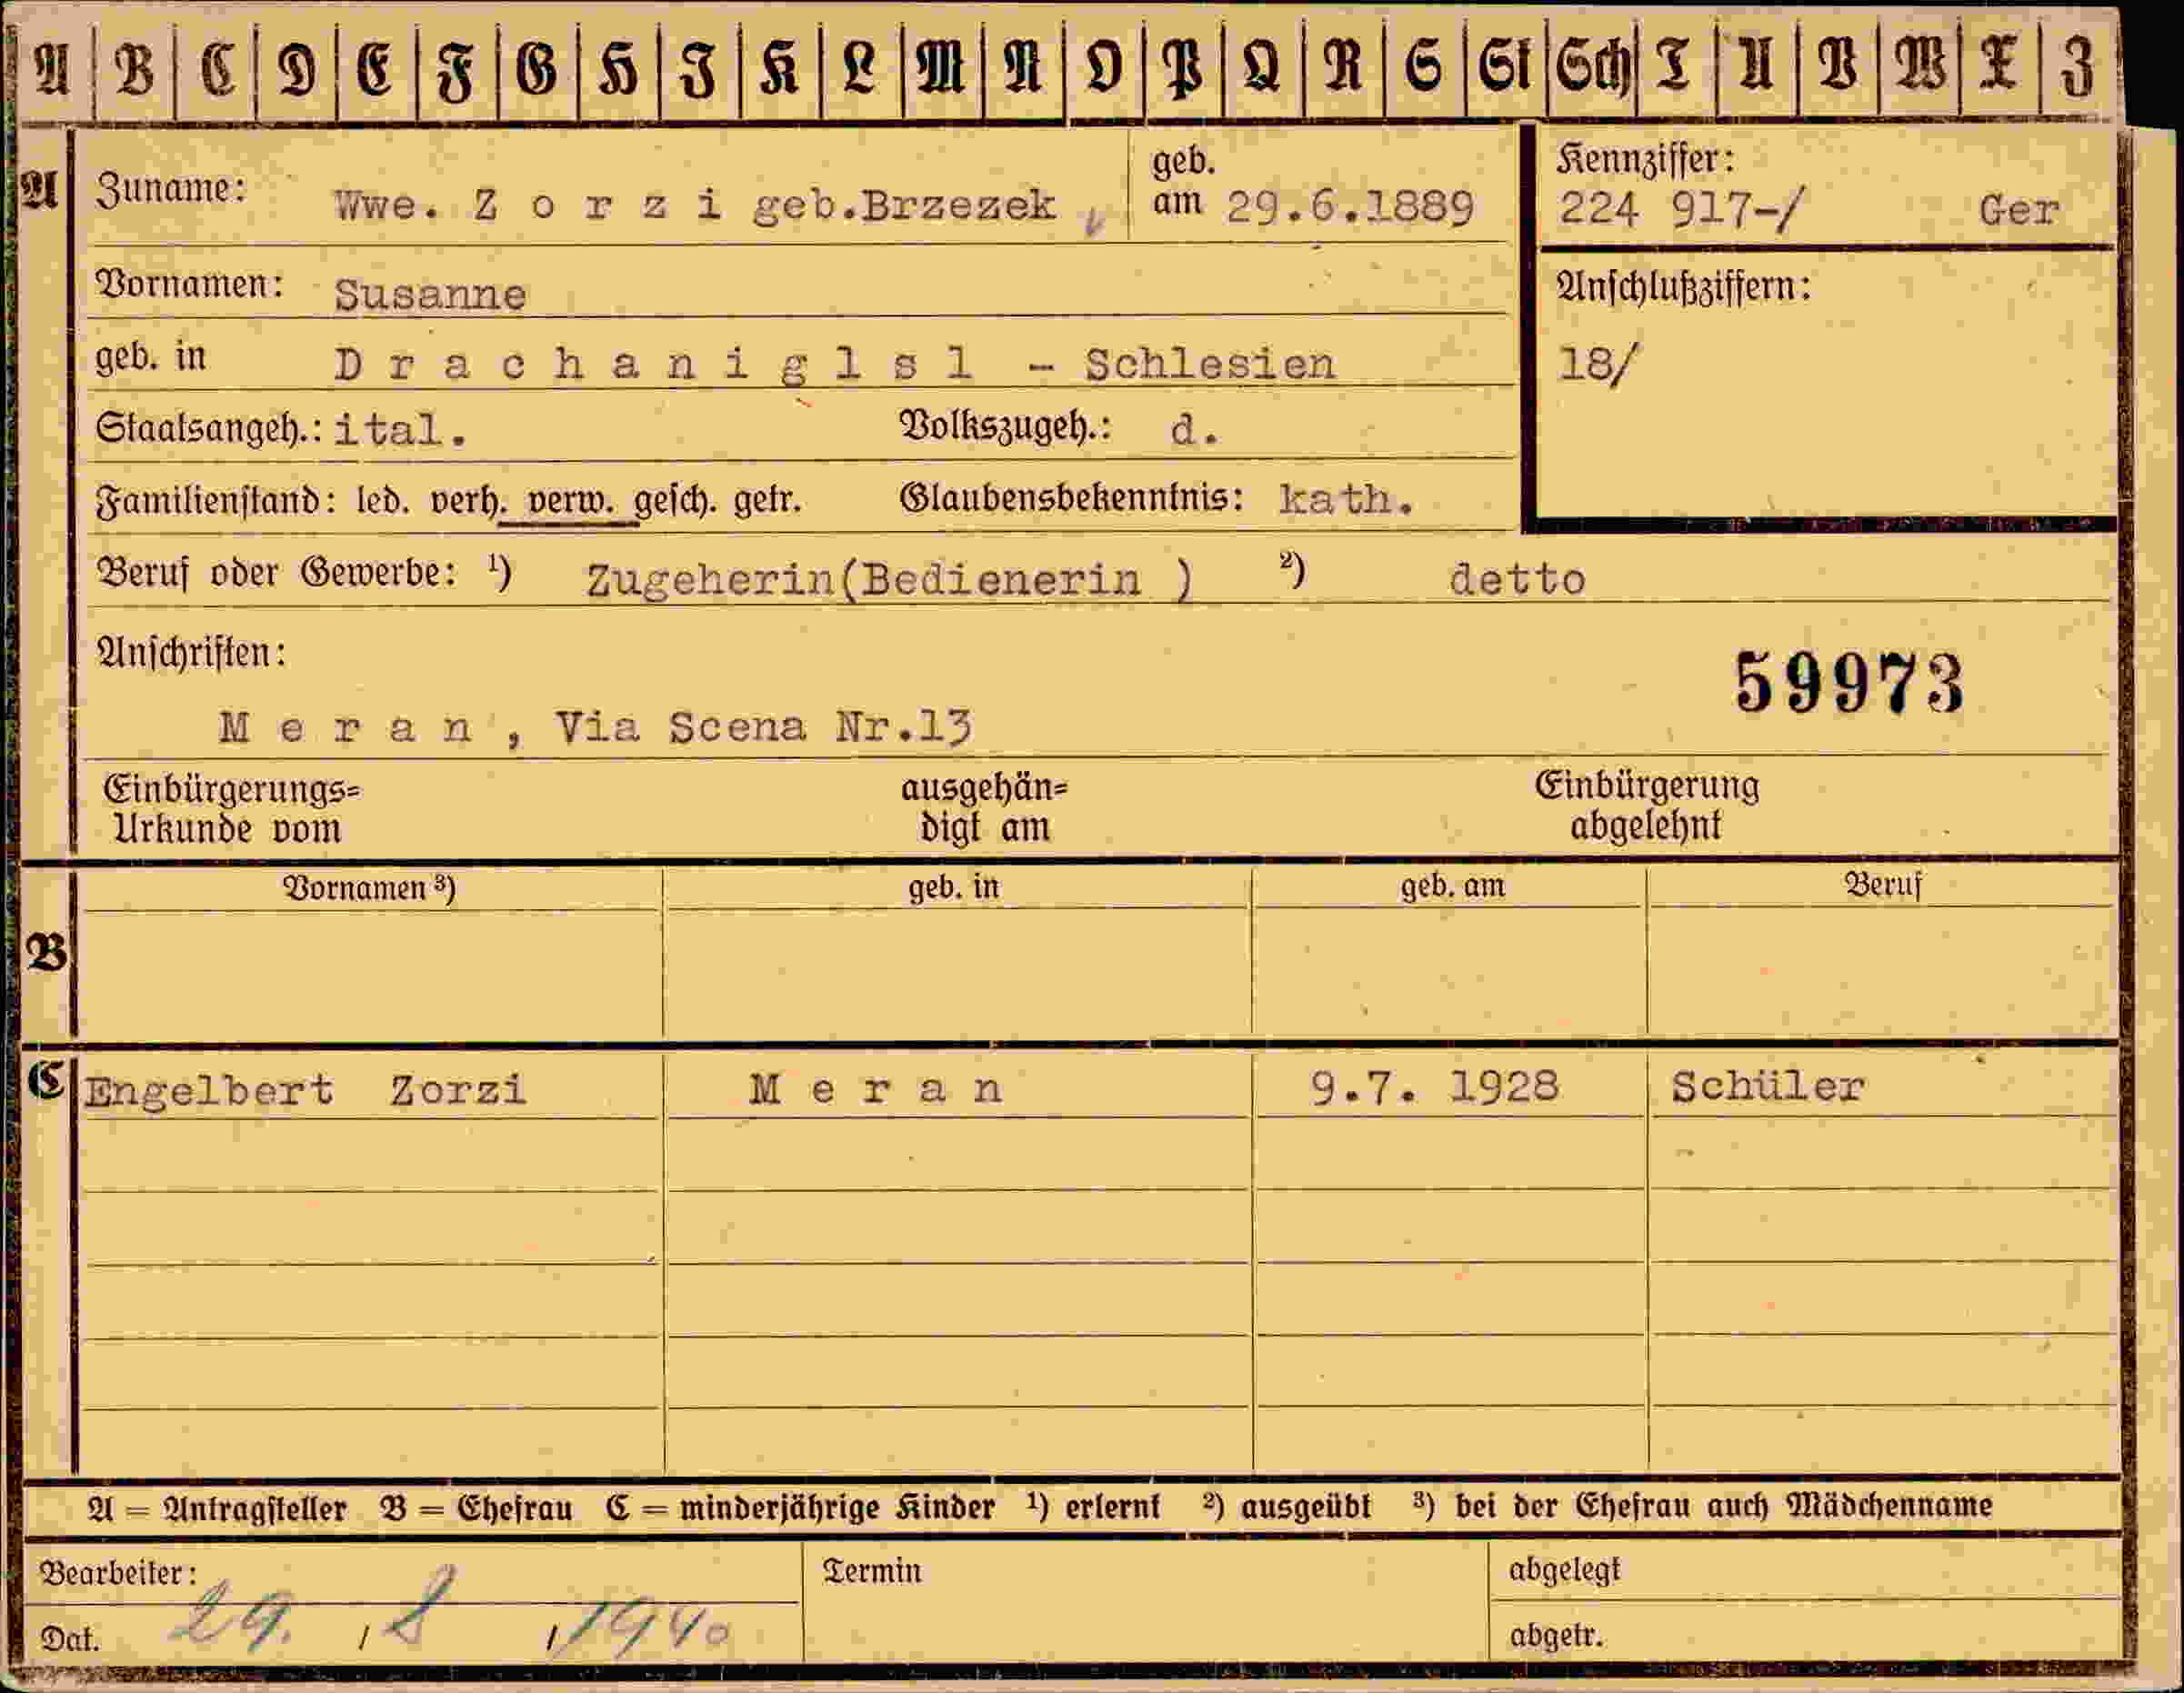 A B C D E F G H I K L M N O P Q R S St Sch T U V W X Z
A Zuname: Wwe. Z o r z i geb.Brzezek geb. am 29.6.1889
Kennziffer:
224 917-/ Ger
Vornamen: Susanne
Anschlußziffern:
geb. in D r a c h a n i g l s l - Schlesien
18/
Staatsangeh.: ital. Volkszugeh.: d.
Familienstand: led. verh. verw. gesch. getr. Glaubensbekenntnis: kath.
Beruf oder Gewerbe: ¹) Zugeherin(Bedienerin ) ²) detto
Anschriften:
59973
M e r a n , Via Scena Nr.13
Einbürgerungs=
Urkunde vom
ausgehän=
digt am
Einbürgerung
abgelehnt
B
Vornamen ³) geb. in geb. am Beruf
C Engelbert Zorzi M e r a n 9.7. 1928 Schüler
A = Antragsteller B = Ehefrau C = minderjährige Kinder ¹) erlernt ²) ausgeübt ³) bei der Ehefrau auch Mädchenname
Bearbeiter: Termin abgelegt
Dat. 29. / 8 / 1940 abgetr.